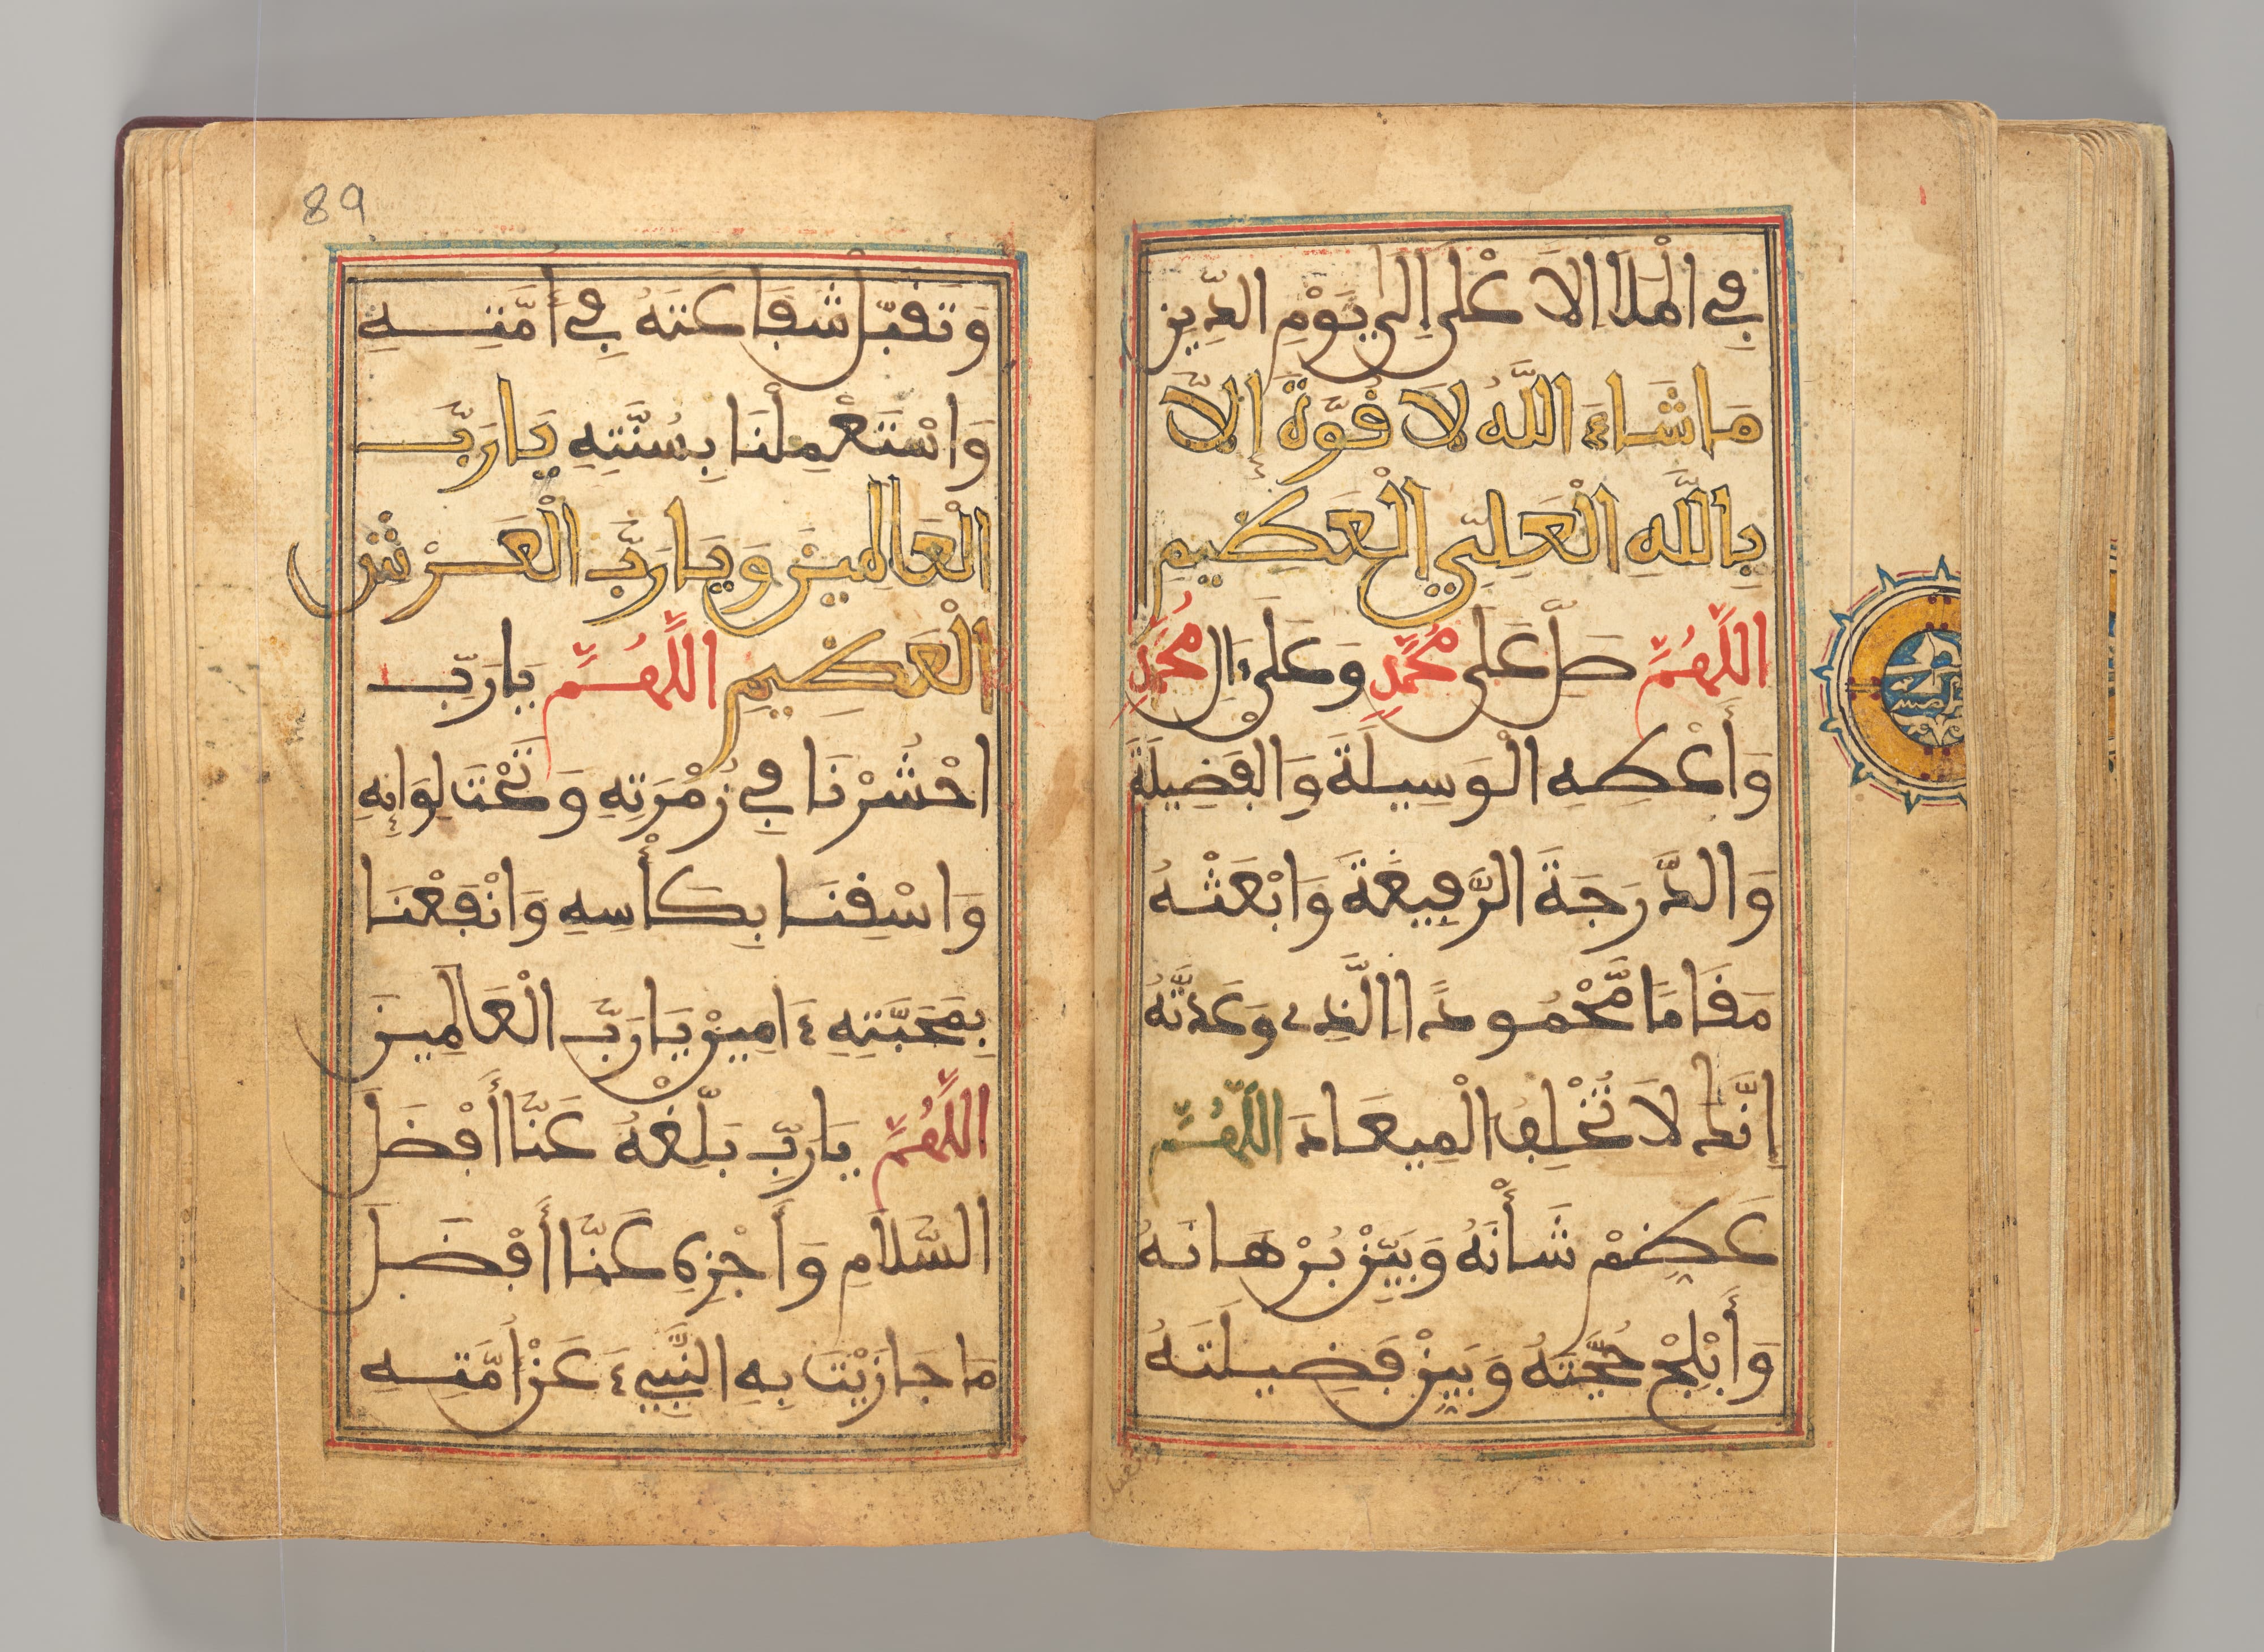 فِي الْمَلَإِ الاَعْلَى إِلَى يَوْمِ الدِّينِ
مَا شَاءَ اللَّهُ لاَ قُوَّةَ إِلاَّ
بِاللَّهِ الْعَلِيِّ الْعَظِيمِ
اللَّهُمَّ صَلِّ عَلَى مُحَمَّدٍ وَعَلَى ءَالِ مُحَمَّدٍ
وَأَعْطِهِ الْوَسِيلَةَ وَالْفَضِيلَةَ
وَالدَّرَجَةَ الرَّفِيعَةَ وَابْعَثْهُ
مَقَامًا مَّحْمُودًا الَّذِي وَعَدتَّهُ
إِنَّكَ لاَ تُخْلِفُ الْمِيعَادَ اللَّهُمَّ
عَظِّمْ شَأْنَهُ وَبَيِّنْ بُرْهَانَهُ
وَأَبْلِجْ حُجَّتَهُ وَبَيِّنْ فَضِيلَتَهُ
89
وَتَقَبَّلْ شَفَاعَتَهُ فِي أُمَّتِهِ
وَاسْتَعْمِلْنَا بِسُنَّتِهِ يَا رَبَّ
الْعَالَمِينَ وَيَا رَبَّ الْعَرْشِ
الْعَظِيمِ اللَّهُمَّ يَا رَبِّ
احْشُرْنَا فِي زُمْرَتِهِ وَتَحْتَ لِوَائِهِ
وَاسْقِنَا بِكَأْسِهِ وَانْفَعْنَا
بِمَحَبَّتِهِ ءَامِينْ يَا رَبَّ الْعَالَمِينَ
اللَّهُمَّ يَا رَبِّ بَلِّغْهُ عَنَّا أَفْضَلَ
السَّلاَمِ وَأَجْزِهِ عَنَّا أَفْضَلَ
مَا جَازَيْتَ بِهِ النَّبِيءَ عَنْ أُمَّتِهِ